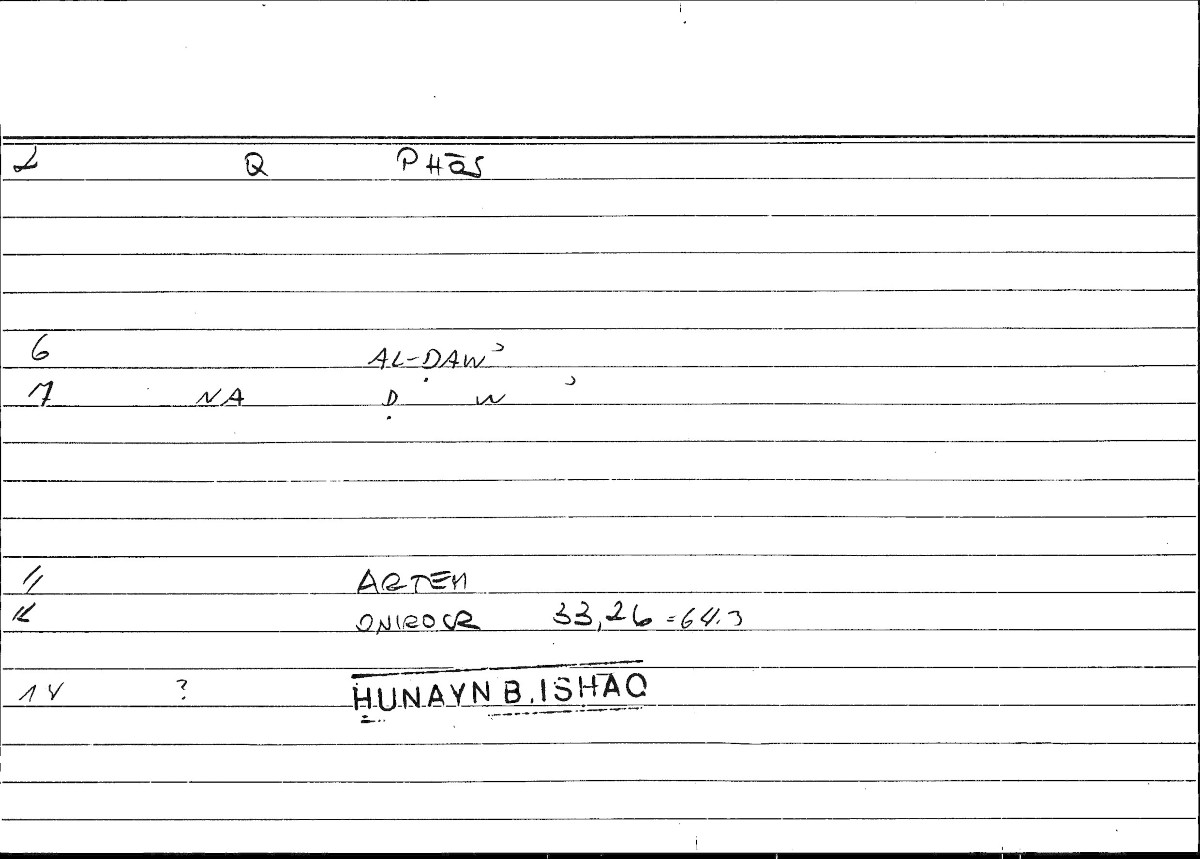 L Q PHŌS
6 AL-ḌAWʾ
7 NA Ḍ W ʾ
11 ARTEM
12 ONIROCR 33,26 = 64.3
14 ? ḤUNAYN B. ISHAQ